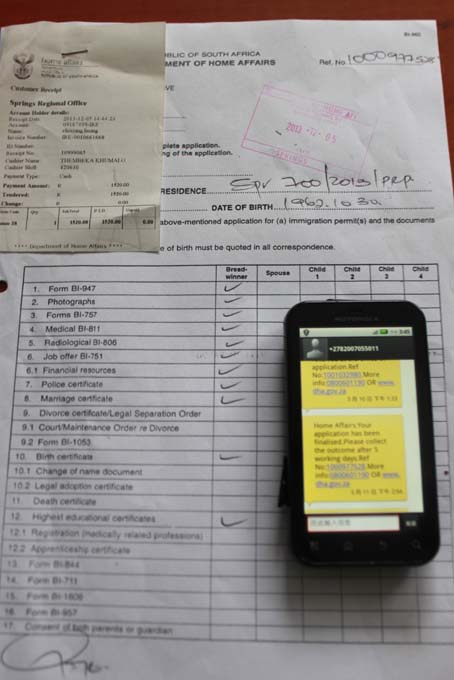 BI-960
PUBLIC OF SOUTH AFRICA
MENT OF HOME AFFAIRS
Ref. No 1000977528
Customer Receipt
Springs Regional Office
Account Holder details:
Receipt Date 2013-12-05 14:44:24
Account
Name
Invoice Number
ID Number
Receipt No.
Cashier Name THEMBEKA KHUMALO
Cashier Shift
Payment Type: Cash
Payment Amount: R 1520.00
Tendered: R 1520.00
Change: R 0.00
Qty
1 1520.00 1520.00 0.00
**** Department of Home Affairs ****
plete application.
ng of the application.
HOME AFFAIRS
2013 -12- 05
RESIDENCE
DATE OF BIRTH 1962.10.30
above-mentioned application for (a) immigration permit(s) and the documents
e of birth must be quoted in all correspondence.
Bread-winner Spouse Child 1 Child 2 Child 3 Child 4
1. Form BI-947
2. Photographs
3. Forms BI-757
4. Medical BI-811
5. Radiological BI-806
6. Job offer BI-751
6.1 Financial resources
7. Police certificate
8. Marriage certificate
9. Divorce certificate/Legal Separation Order
9.1 Court/Maintenance Order re Divorce
9.2 Form BI-1053
10. Birth certificate
10.1 Change of name document
10.2 Legal adoption certificate
11. Death certificate
12. Highest educational certificates
12.1 Registration (medically related professions)
12.2 Apprenticeship certificate
13. Form BI-844
14. Form BI-711
15. Form BI-1608
16. Form BI-957
17. Consent of both parents or guardian
MOTOROLA
3:45
+2782007055011
application.Ref
No:1001032980.More
info:0800601190 OR www.
dha.gov.za
Home Affairs Your
application has been
finalised.Please collect
the outcome after 5
working days.Ref
No:1000977528.More
info:0800601190 OR www.
dha.gov.za